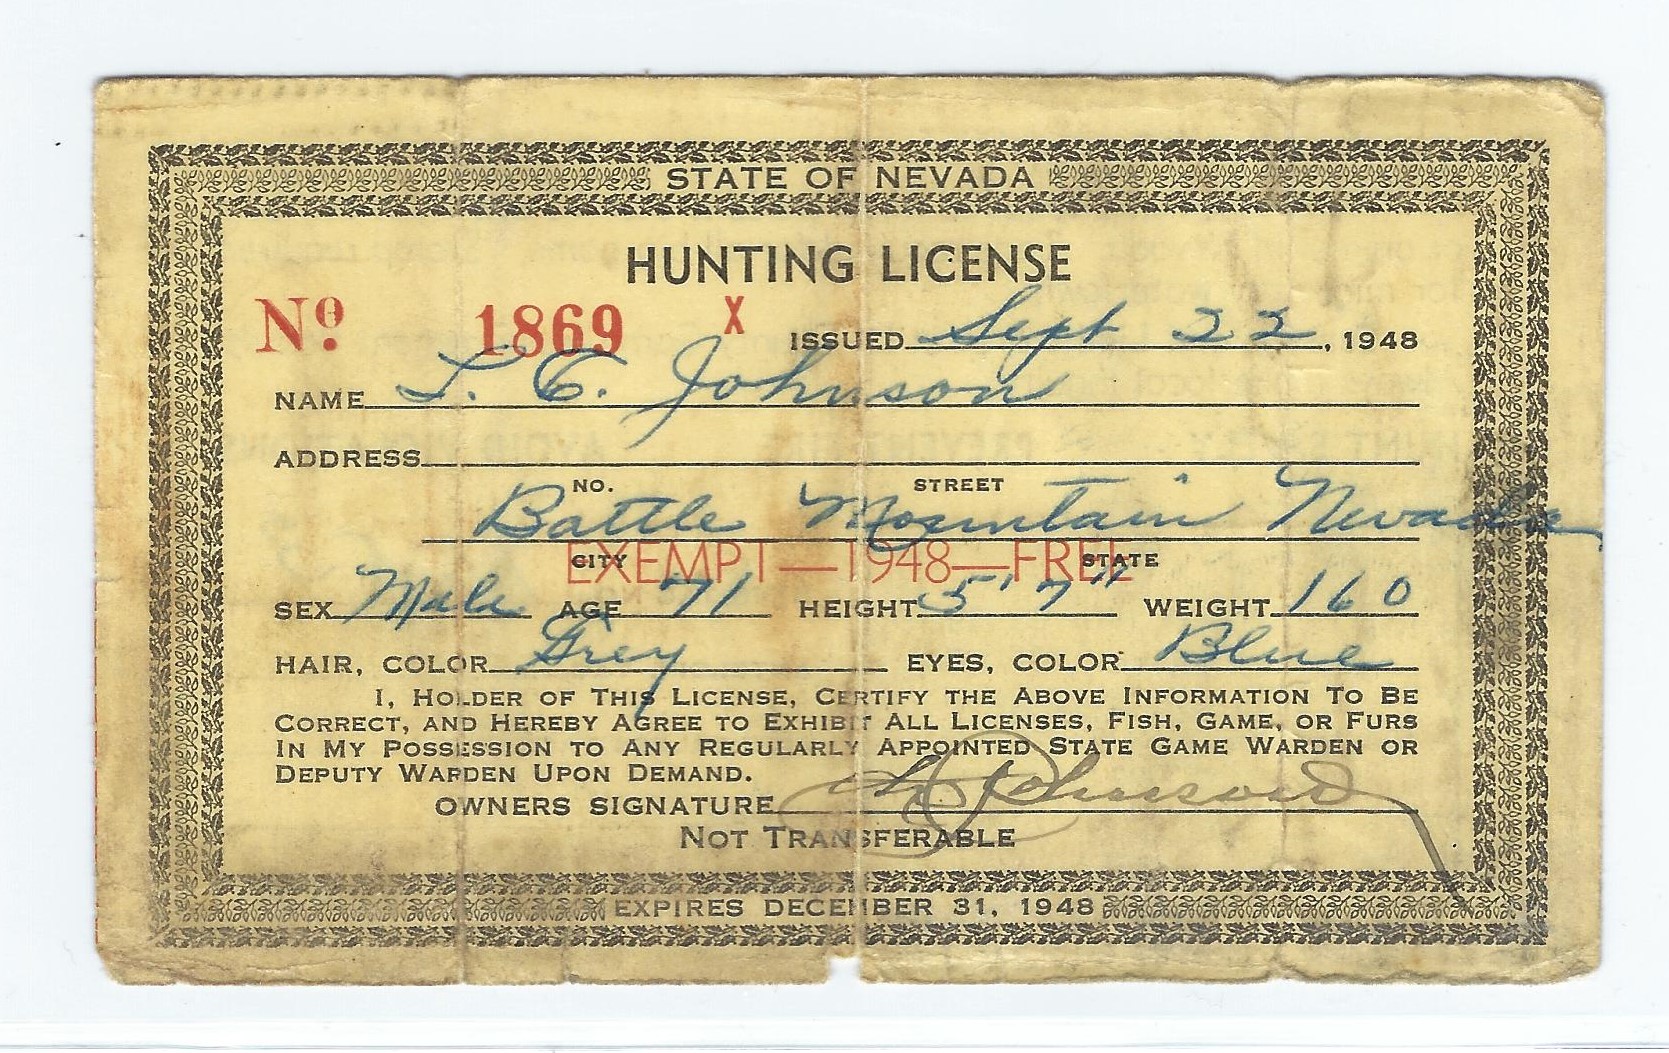 STATE OF NEVADA
HUNTING LICENSE
Nº 1869 X ISSUED Sept 22, 1948
NAME Johnson
ADDRESS
NO. STREET
Battle Mountain Nevada
CITY STATE
EXEMPT—1948—FREE
SEX Male AGE 71 HEIGHT 5'7" WEIGHT 160
HAIR, COLOR Grey EYES, COLOR Blue
I, HOLDER OF THIS LICENSE, CERTIFY THE ABOVE INFORMATION TO BE
CORRECT, AND HEREBY AGREE TO EXHIBIT ALL LICENSES, FISH, GAME, OR FURS
IN MY POSSESSION TO ANY REGULARLY APPOINTED STATE GAME WARDEN OR
DEPUTY WARDEN UPON DEMAND.
OWNERS SIGNATURE Johnson
NOT TRANSFERABLE
EXPIRES DECEMBER 31, 1948